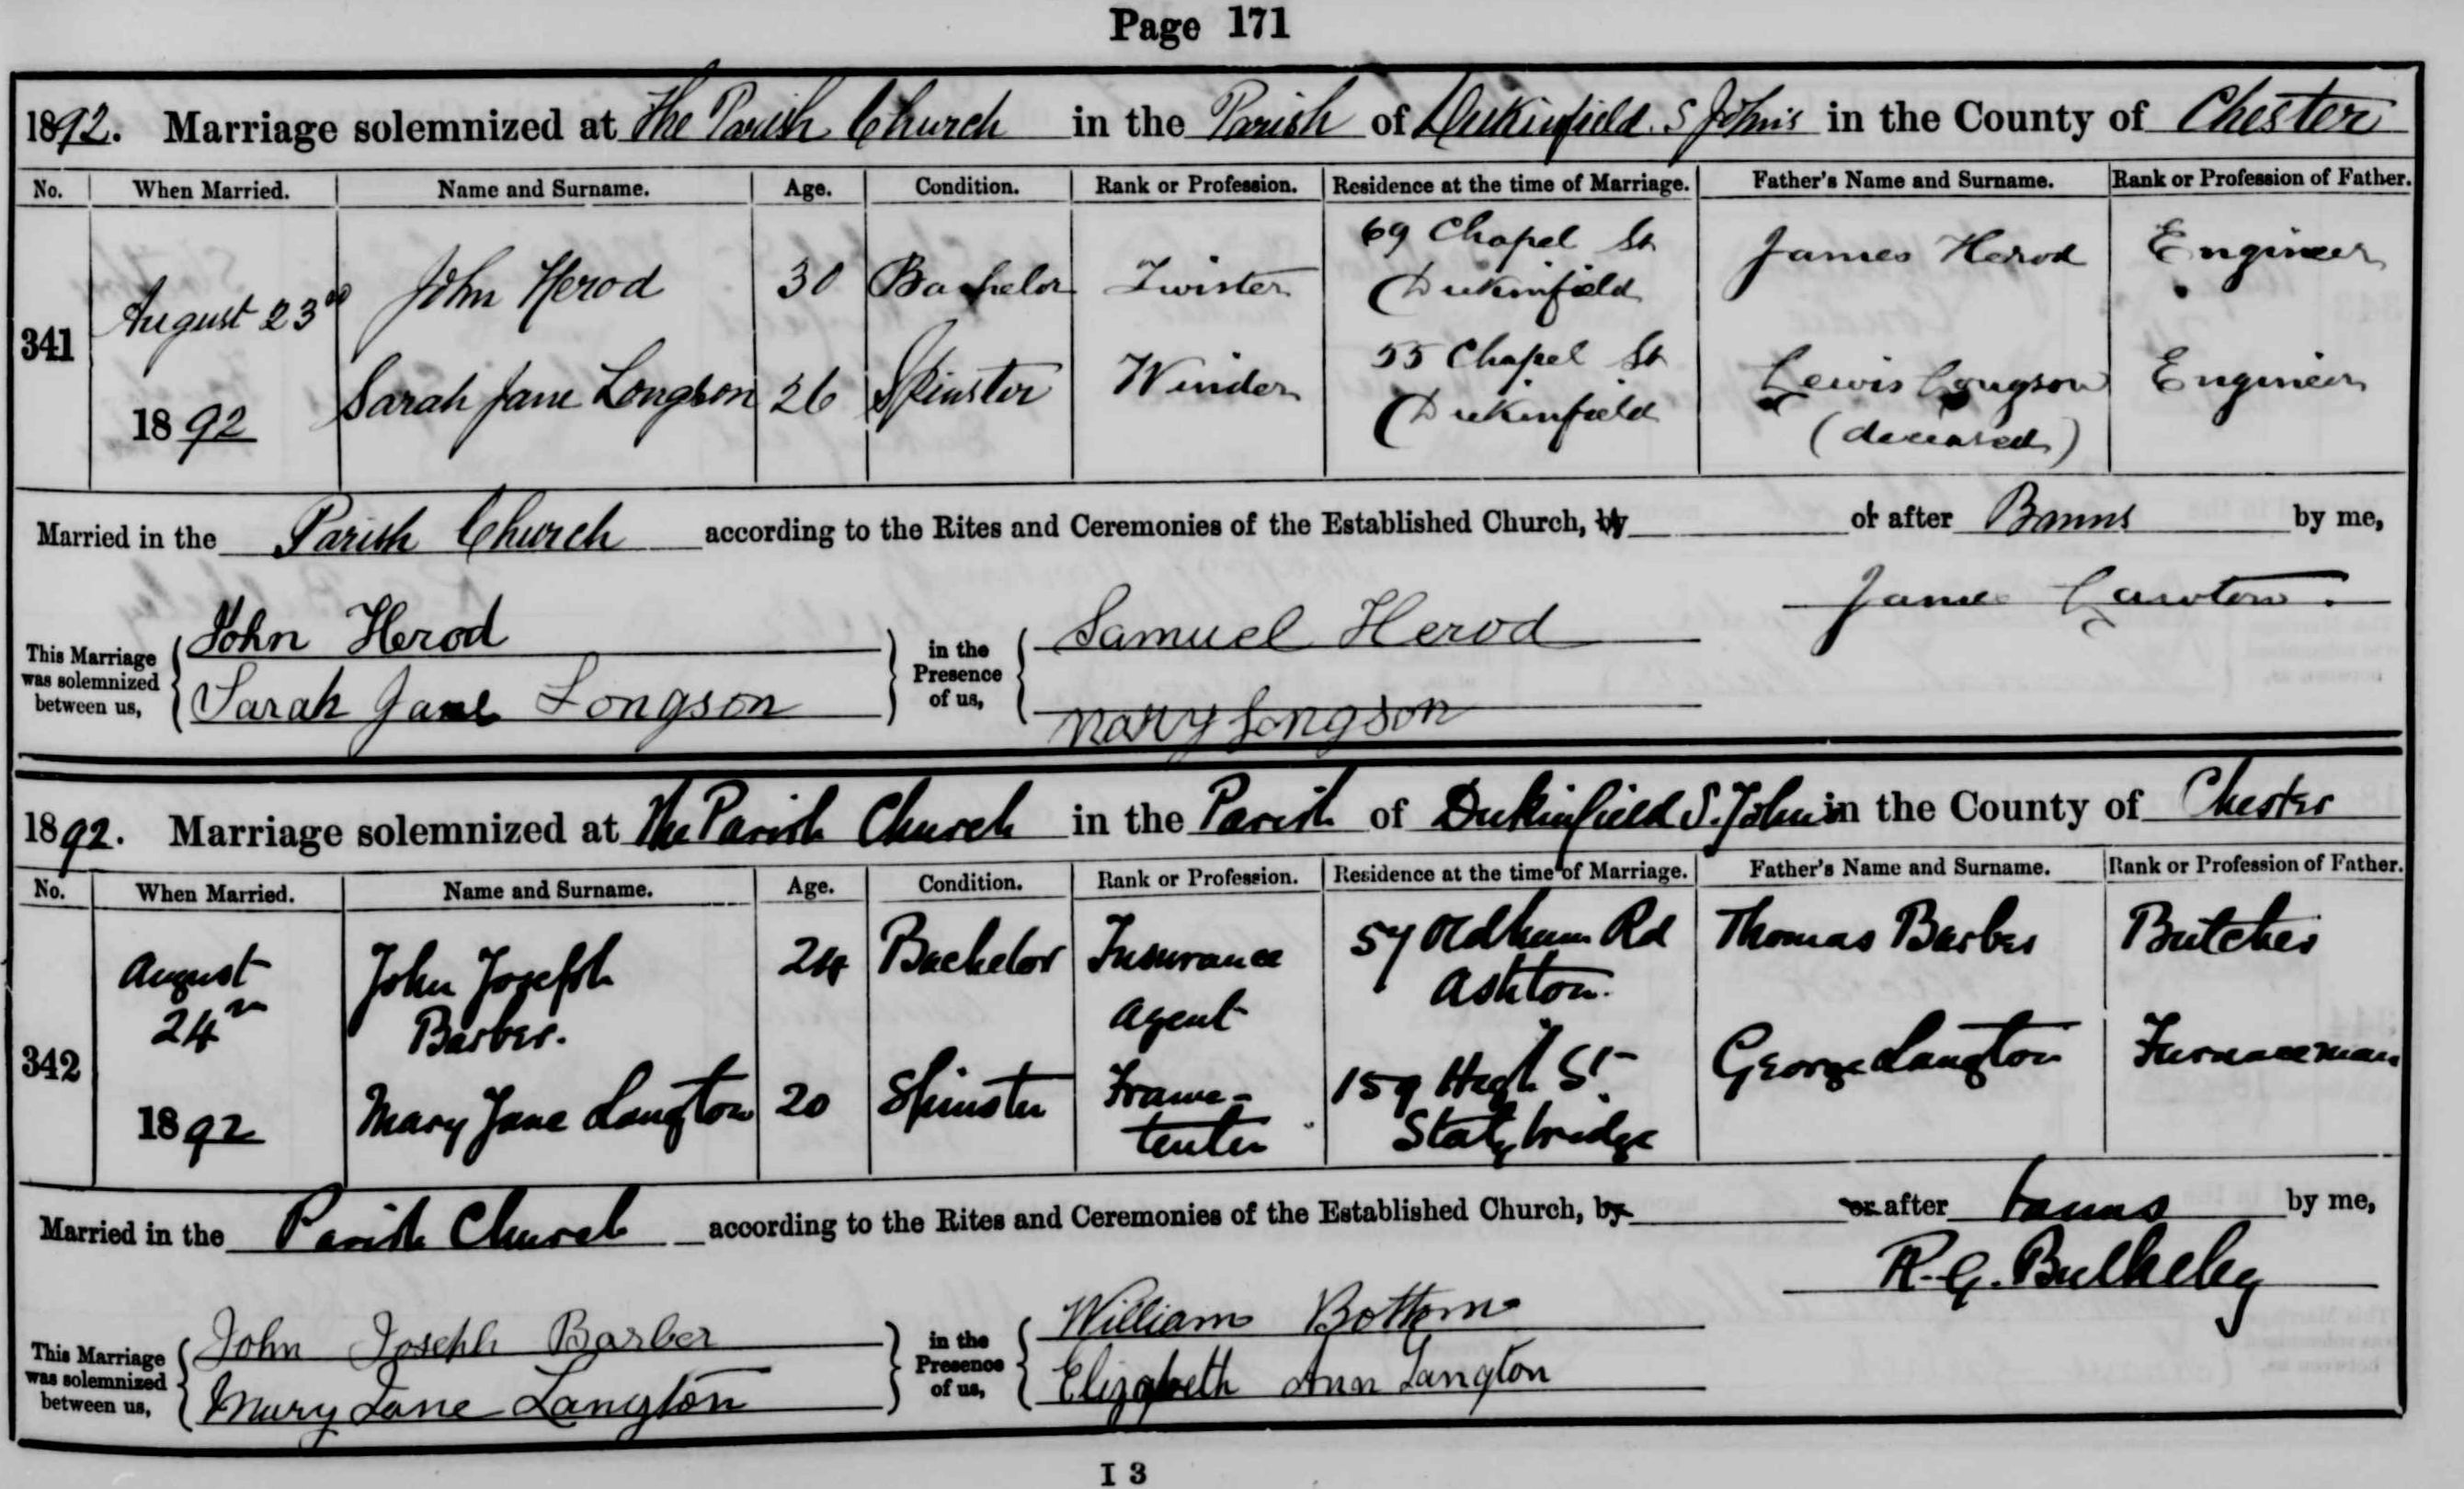 Page 171
1892. Marriage solemnized at The Parish Church in the Parish of Dukinfield S John's in the County of Chester
No. When Married. Name and Surname. Age. Condition. Rank or Profession. Residence at the time of Marriage. Father's Name and Surname. Rank or Profession of Father.
341 August 23rd 1892
John Herod 30 Bachelor Twister 69 Chapel St Dukinfield James Herod Engineer
Sarah Jane Longson 26 Spinster Winder 55 Chapel St Dukinfield Lewis Longson (deceased) Engineer
Married in the Parish Church according to the Rites and Ceremonies of the Established Church, by or after Banns by me,
James Lawton.
This Marriage was solemnized between us, John Herod in the Presence of us, Samuel Herod
Sarah Jane Longson Mary Longson
1892. Marriage solemnized at The Parish Church in the Parish of Dukinfield S. John in the County of Chester
No. When Married. Name and Surname. Age. Condition. Rank or Profession. Residence at the time of Marriage. Father's Name and Surname. Rank or Profession of Father.
342 August 24th 1892
John Joseph Barber. 24 Bachelor Insurance Agent 57 Oldham Rd Ashton. Thomas Barber Butcher
Mary Jane Langton 20 Spinster Frame-tenter 159 High St. Stalybridge George Langton Furnaceman
Married in the Parish Church according to the Rites and Ceremonies of the Established Church, by or after banns by me,
R. G. Bulkeley
This Marriage was solemnized between us, John Joseph Barber in the Presence of us, William Bottoms
Mary Jane Langton Elizabeth Ann Langton
I 3